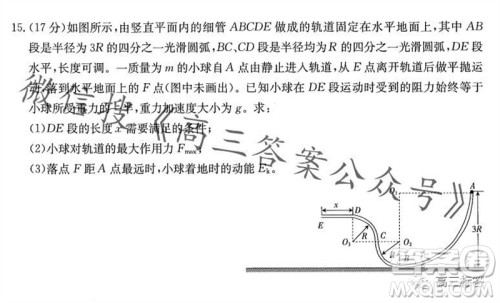 15.(17分)如图所示,由竖直平面内的细管 ABCDE 做成的轨道固定在水平地面上,其中 AB
段是半径为 3R 的四分之一光滑圆弧,BC、CD 段是半径均为 R 的光滑圆弧,DE 段
水平,长度可调。一质量为 m 的小球自 A 点由静止进入轨道,从 E 点离开轨道后做平抛运
动,落到水平地面上的 F 点(图中未画出)。已知小球在 DE 段运动时受到的阻力始终等于
小球所受重力的一半,重力加速度大小为 g。求:
(1)DE 段的长度 x 需要满足的条件;
(2)小球对轨道的最大作用力 Fmax;
(3)落点 F 距 A 点最远时,小球着地时的动能 Ek。
微信搜《高三答案公众号》
O₁ A
x
E D
3R
R C
O₃ O₂
R
B
高三标答